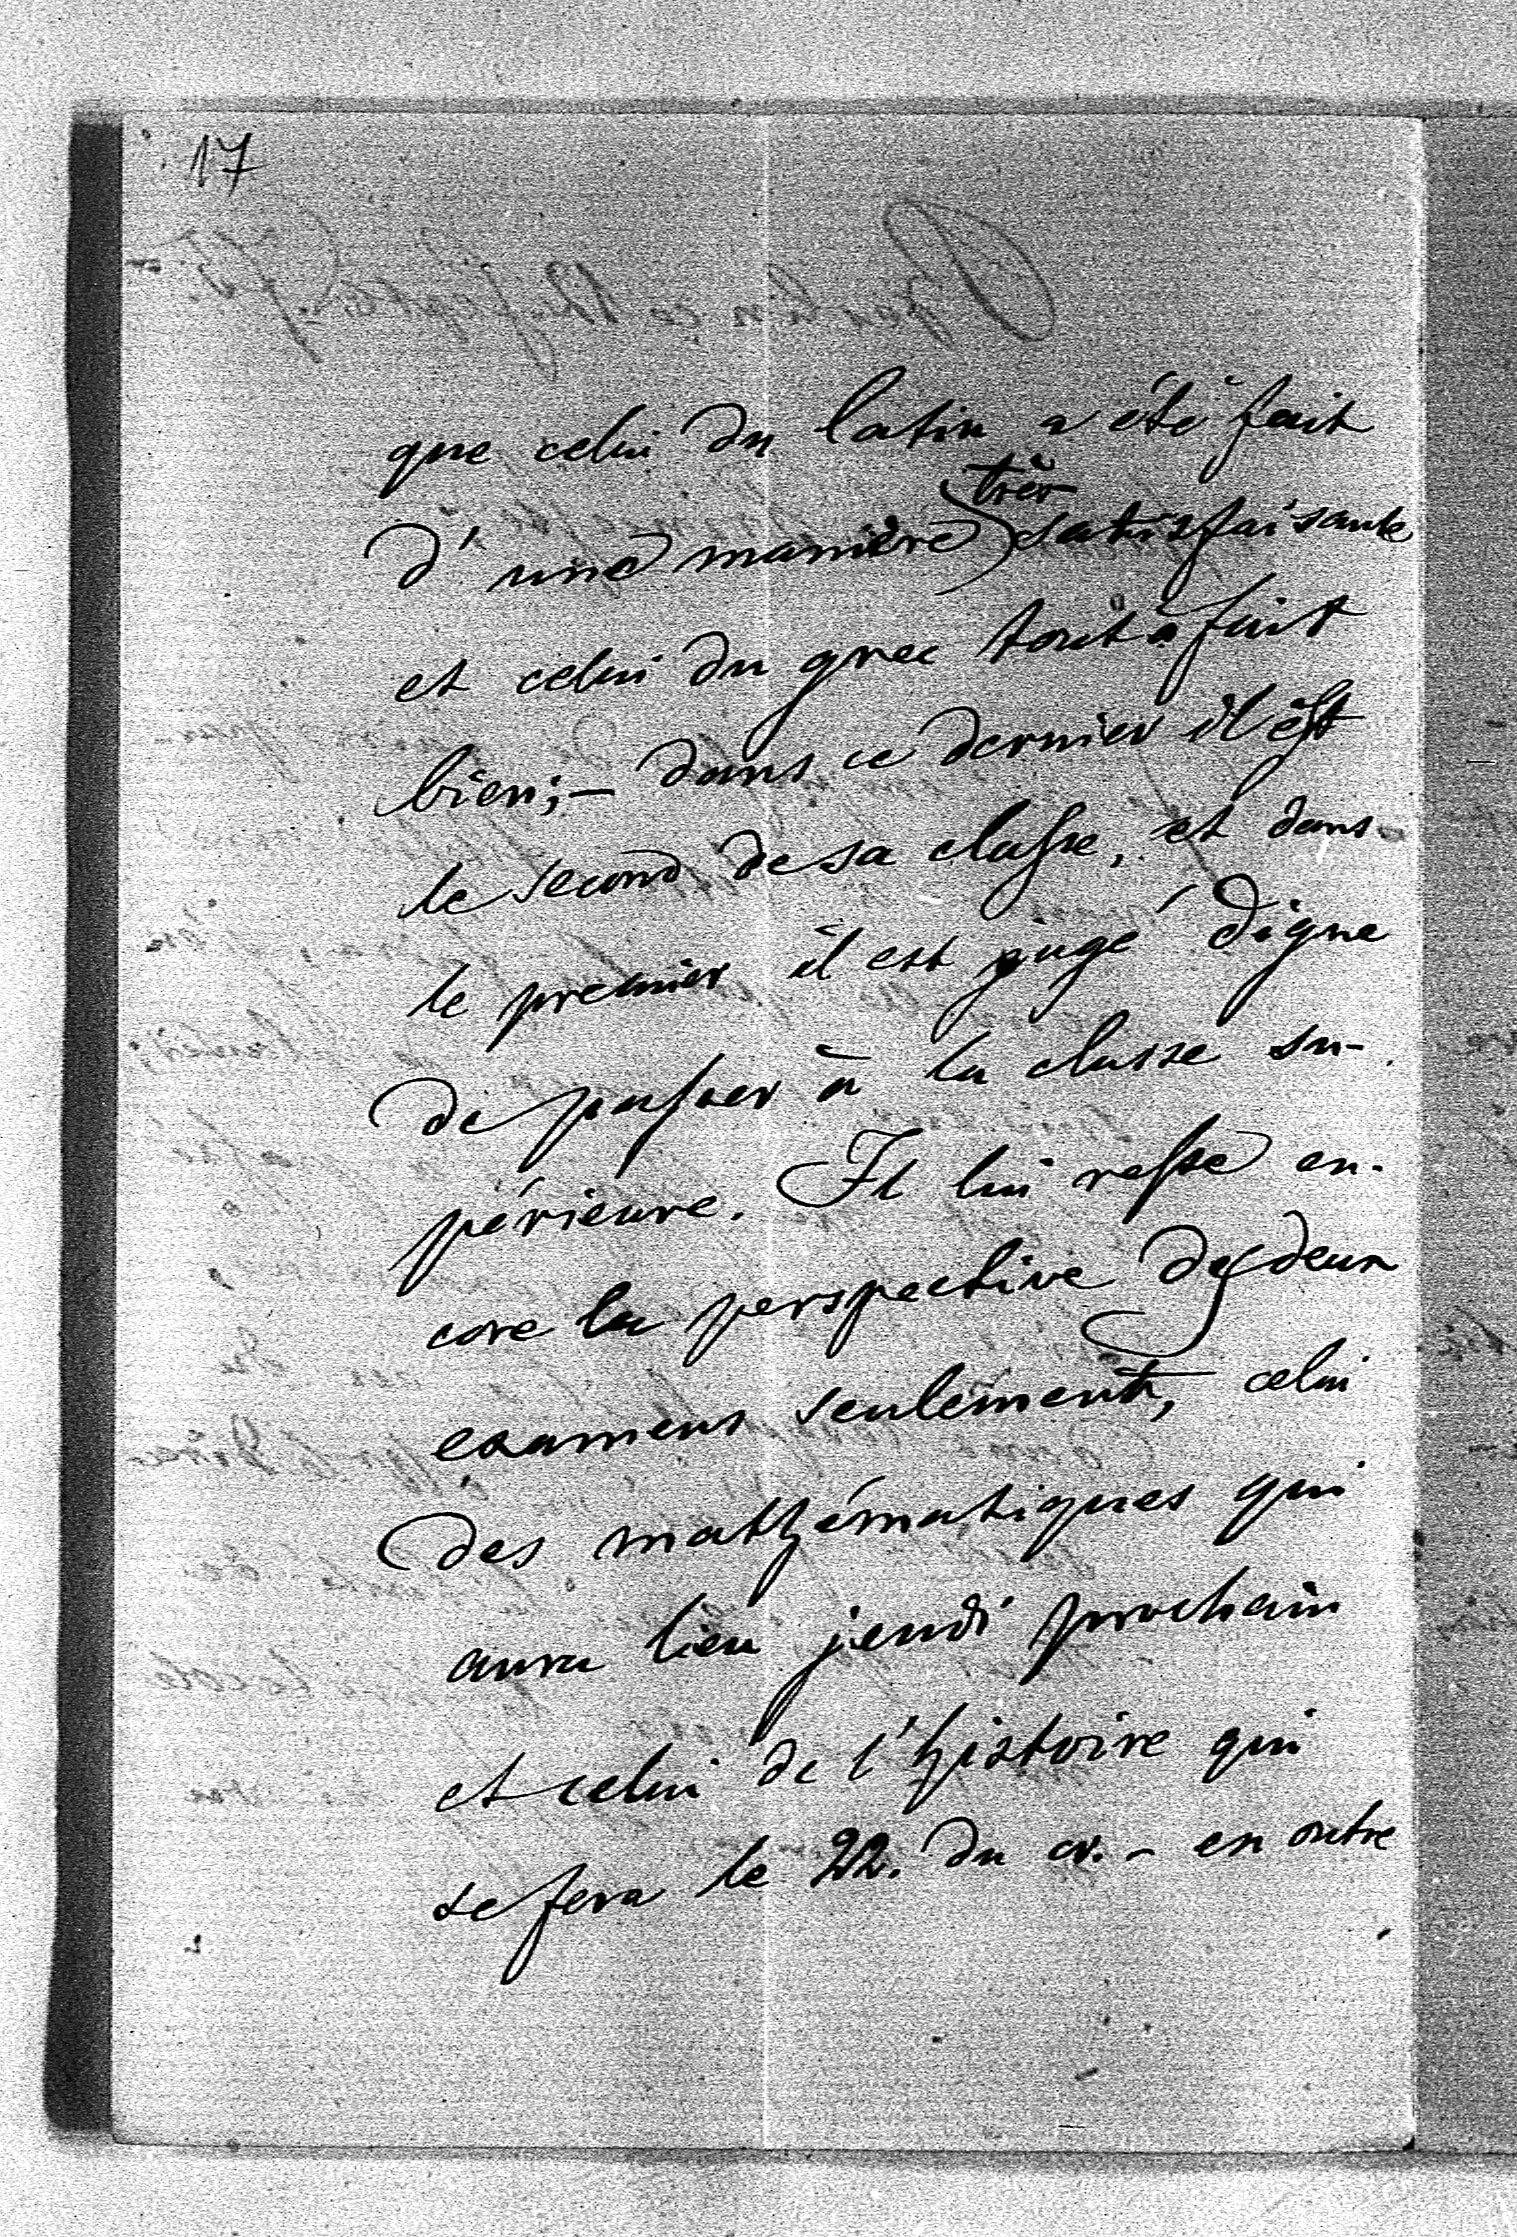 17
que celui du latin a été fait
très
d'une manière satisfaisante
et celui du grec tout à fait
bien; – dans ce dernier il est
le second de sa classe, et dans
le premier il est jugé digne
de passer à la classe su-
périeure. Il lui reste en-
core la perspective de deux
examens seulement, celui
des mathématiques qui
aura lieu jeudi prochain
et celui de l'histoire qui
se fera le 22. du cr. – en outre